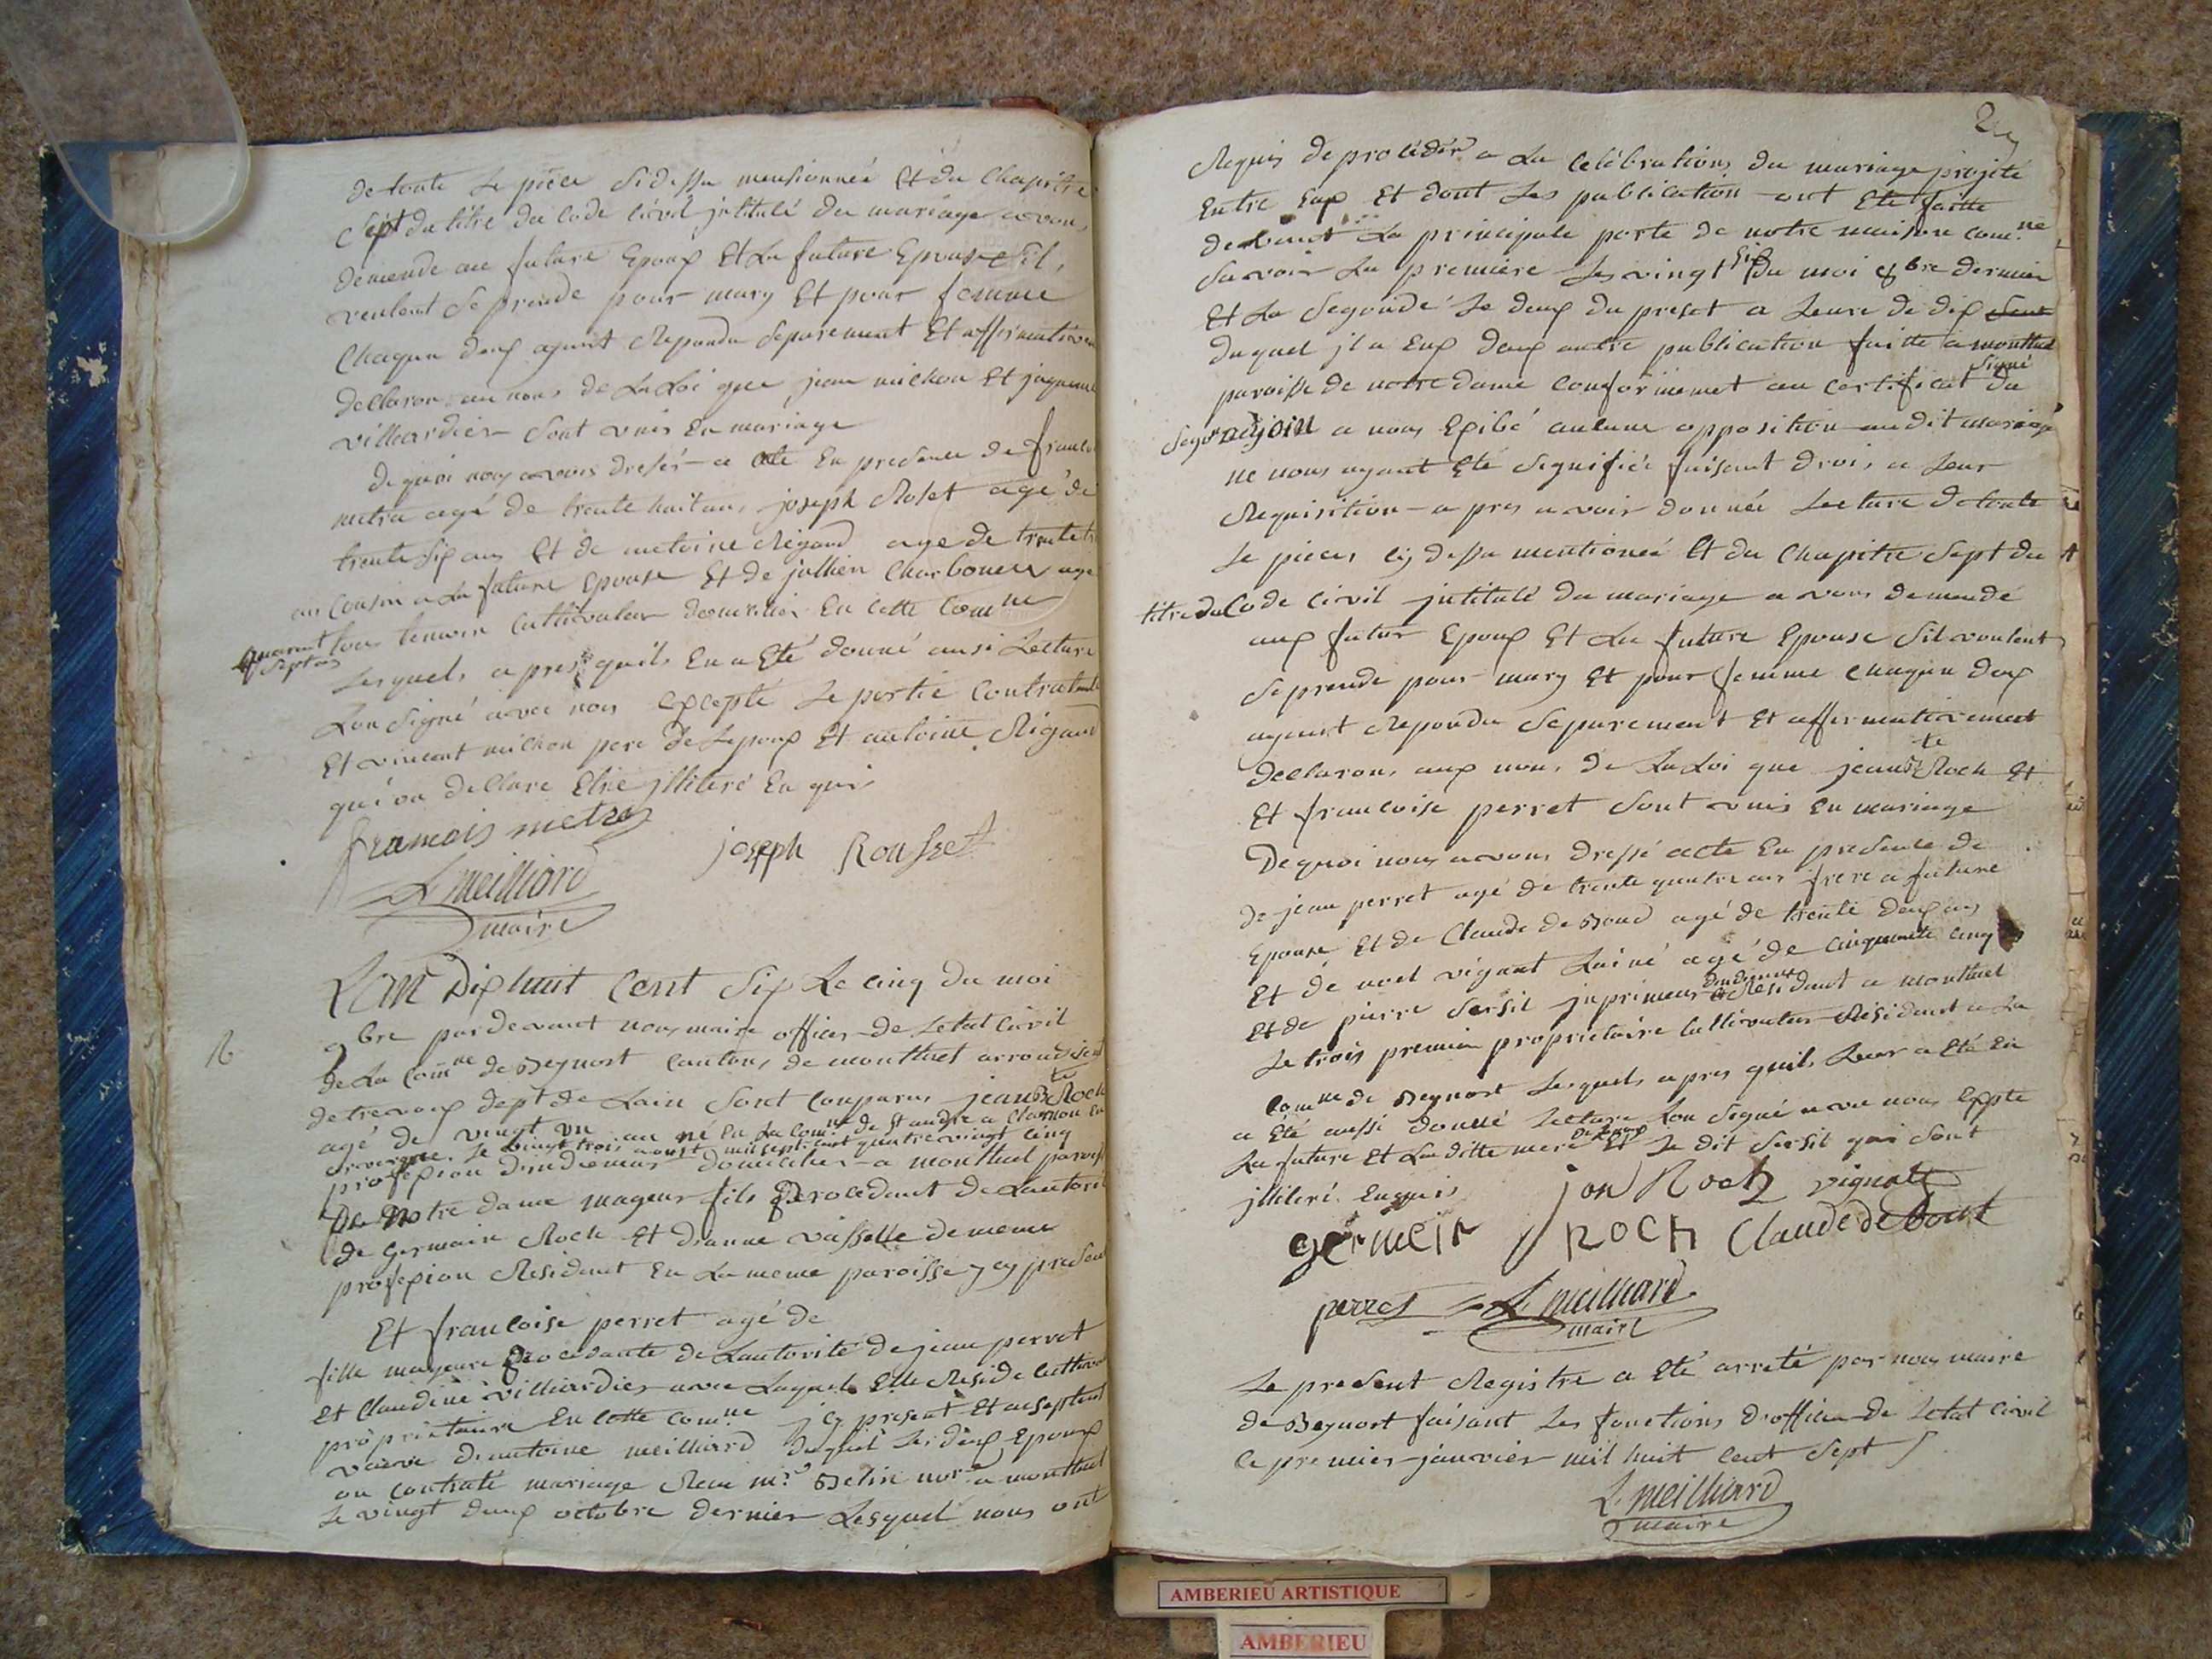 de toute le piece sidessu mensionnée Et du Chapitre
Sept du titre du Code Civil jntitulé du mariage avons
demende au future Epoux Et La future Epouse sil
veulent se prende pour mary Et pour femme
Chaqun deux ayant Repondu separement Et affirmativem
declaron au nons de La Loi que jean michon Et jaquem
villiardier sont unis En mariage
de quoi nous avons dresés acte En presence de francois
metra agé de trente huit ans, joseph Roset agé de
trente six ans Et de antoine Rigaud age de trente
ans Cousin a La future Epouse Et de jullien Charbonne age
quarant sept ans
tous temoin Cultivateur domicilier En Cette Comne
Lesquels apres quils En a Eté donné ausi Lecture
Lon signé avec nous Excepté Le partie Contratente
Et vincent michon pere de Lepoux Et antoine Rigaud
qui on declare Etre jlliteré En quis
francois metra
joseph Rousset
L meilliard
maire
R
L'an Dix huit Cent Six Le cinq du moi
9bre par devant nous maire officier de Letat Civil
de La Comne de Beynost Cantons de montluel arrondisem
de trevoux dept de Lain sont Comparus jean Bte Roch
agé de vingt un an né En La Comne de St andre a Clarmon En
overgne Le vingt trois aoust mil sept cent quatre vingt cinq
profexion domicilier a montluel paroise
De Notre dame mageur fils Procedant de Lautorit
de Germain Roch Et dianne vasselle de meme
profexion Residant En La meme paroisse jcy presen
Et francoise perret agé de
fille mageure Procedante de Lautorité de jean perret
Et Claudine villiardier avec Laquele Elle Reside Cultiva
proprietaire En Cette Comne jcy present Et acseptent
veuve dantoine meilliard duquel Les deux Epoux
on contraté mariage Recu mr Belin nore a montluel
Le vingt deux octobre dernier Lesquel nous ont
2
Requis de procédér a La Celébrations du mariage projité
Entre Eux Et dont Les publication ont Eté faitte
devant La principale porte de notre maison Comne
savoir La premiere Les vingt six du moi 8bre dernier
Et La Segonde Le deux du preset a Leure de dix
duquel jl a Eux deux autre publication faitte a montluel
paroisse de notre dame Conforimemet au Certificat signé du
a nous Exibé aucune opposition audit mariage
ne nous ayant Eté signifiée faisant drois a Leur
Requisition apres avoir donnée Lecture de toute
Le pieces cy dessu mentioneé Et du Chapitre Sept du
titre du Code Civil jntitulé du mariage avons demendé
aux futur Epoux Et La future Epouse sil voulent
se prende pour mary Et pour femme Chaqun deux
ayant Repondu Separement Et affirmativement
declarons aux nons de La Loi que jean Bte Roch Et
Et francoise perret sont unis En mariage
De quoi nous avons dressé acte En presence de
de jean perret agé de trente quatre ans frere a future
Epouse Et de Claude de Boud agé de trente deux ans
Et de noel vignat Lainé agé de Cinquante cinq
Et de pierre Sersil jnprimeur dindienne Residant a montluel
Le trois premier proprietaire Cultivateur Residant a La
Comne de Beynost Lesquels apres quils Leur a Eté En
a Eté aussi donné Lecture Lon signé avec nous Expte
La future Et La ditte mere de Lepoux Et Le dit Sersil qui sont
jlliteré Enquis
jon Roch vignat
germein ROCH Claude de Bout
perret
L meilliard
maire
Le present Registre a Eté arreté par nous maire
de Beynost faisant Les fonctions dofficier de Letat Civil
Ce premier janvier mil huit Cent Sept
L. meilliard
maire
AMBERIEU ARTISTIQUE
AMBERIEU